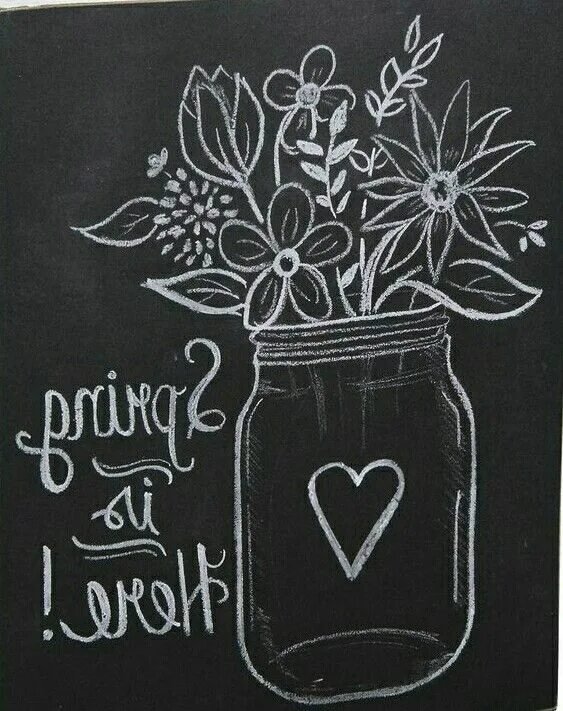 Spring
is
Here!